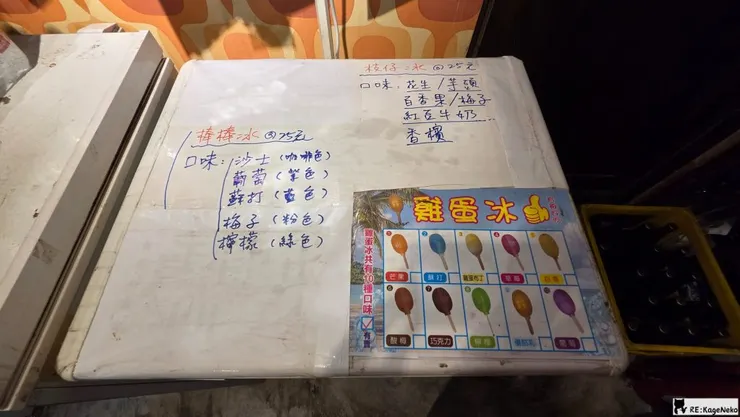 棒棒冰@25元
口味:沙士(咖啡色)
葡萄(紫色)
蘇打(藍色)
梅子(粉色)
檸檬(綠色)
枝仔冰@25元
口味:花生/芋頭
百香果/梅子
紅豆牛奶...
香檳
雞蛋冰
雞蛋冰共有10種口味
有賣
芒果
蘇打
雞蛋布丁
草莓
酸梅
巧克力
檸檬
葡萄
RE:KageNeko